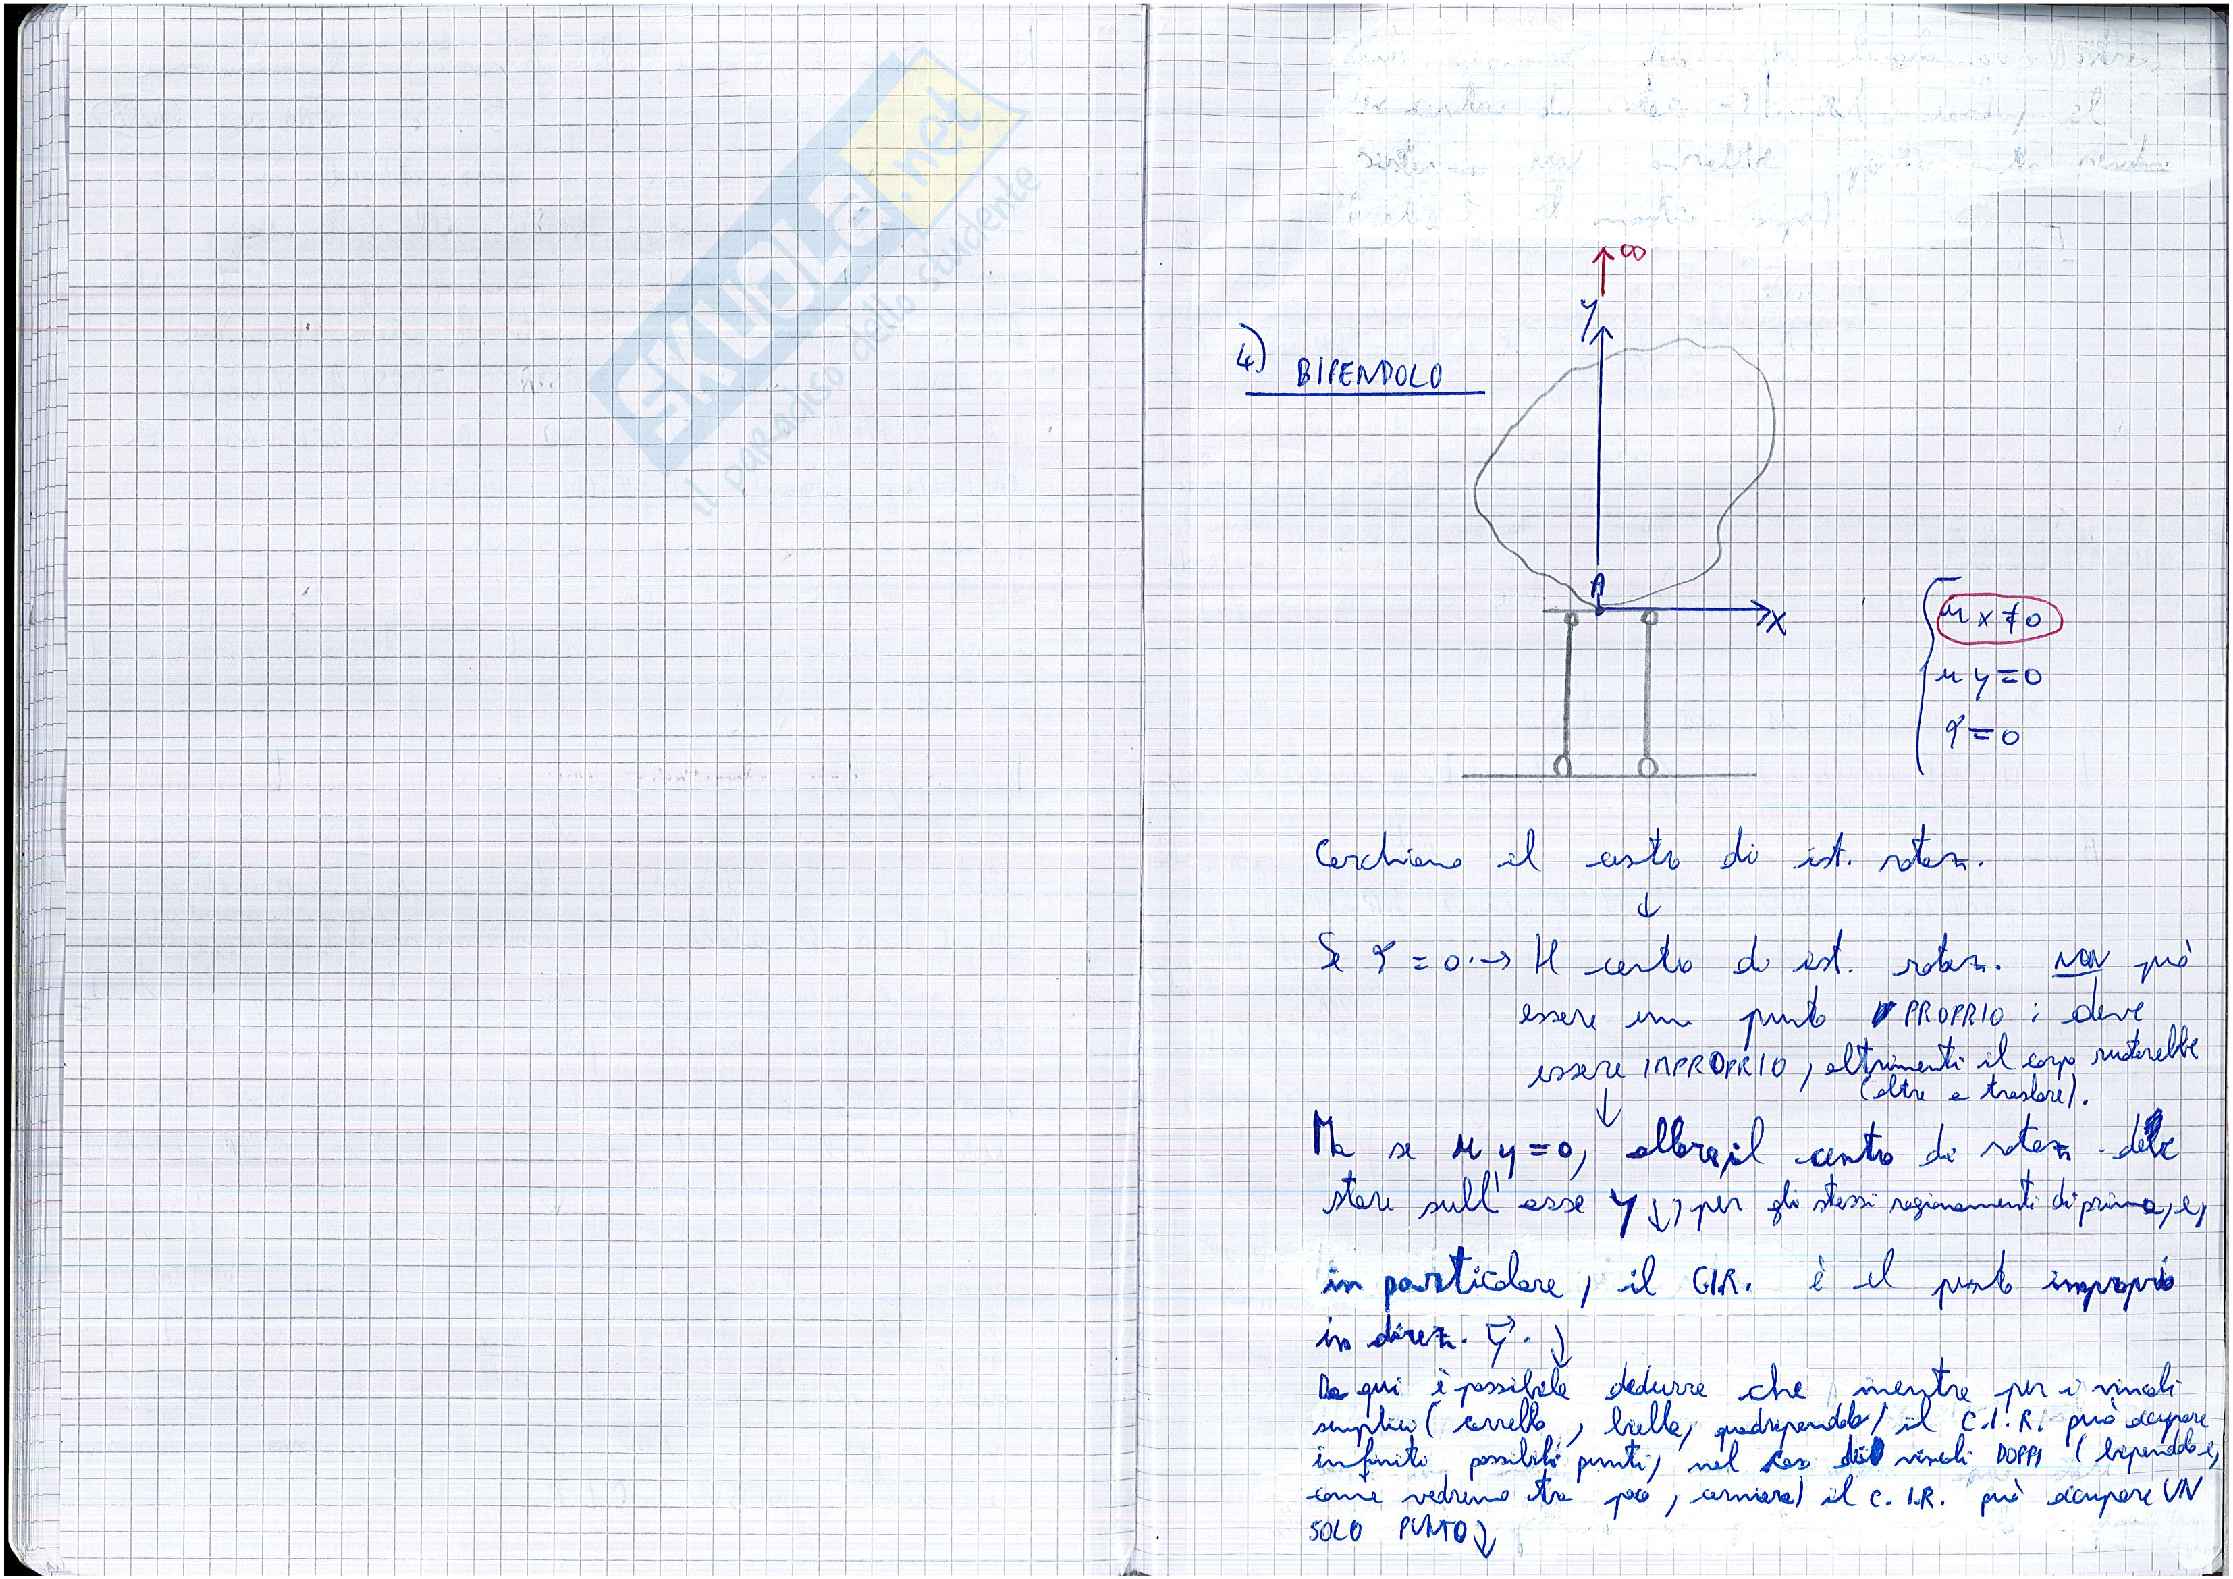 SKUOLA.net
il paradiso dello studente
∞
y
4) BIPENDOLO
A
x
u x ≠ 0
u y = 0
φ = 0
Cerchiamo il centro di ist. rotaz.
↓
Se φ = 0 → Il centro di ist. rotaz. NON può
essere un punto PROPRIO : deve
essere IMPROPRIO, altrimenti il corpo ruoterebbe
(oltre a traslare).
↓
Ma se u y = 0, allora, il centro di rotaz. deve
stare sull'asse y ↓, per gli stessi ragionamenti di prima, e,
in particolare, il C.I.R. è il punto improprio
in direz. y. ↓
Da qui è possibile dedurre che mentre per i vincoli
semplici (carrello, biella, quadripendolo) il C.I.R. può occupare
infiniti possibili punti, nel caso di vincoli DOPPI (bipendolo e,
come vedremo tra poco, cerniera) il C.I.R. può occupare UN
SOLO PUNTO ↓